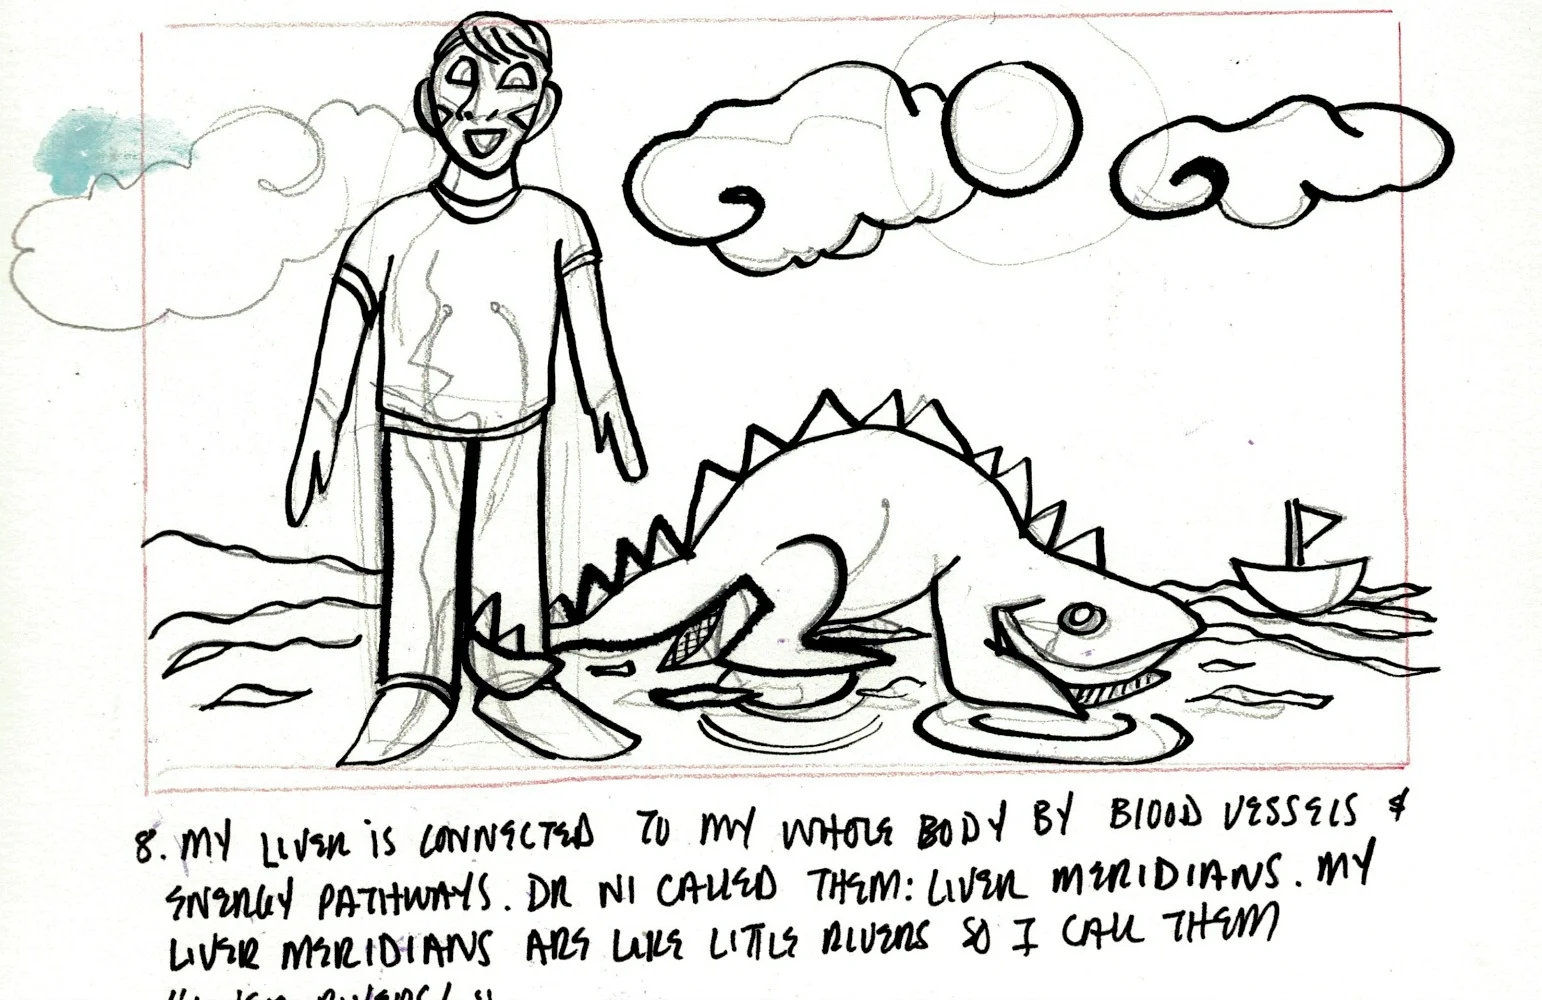 8. MY LIVER iS CONNECTED TO MY WHOLE BODY BY BLOOD VESSELS &
ENERGY PATHWAYS. DR NI CALLED THEM: LIVER MERIDIANS. MY
LIVER MERIDIANS ARE LIKE LITTLE RIVERS SO I CALL THEM
"LIVER RIVERS!"